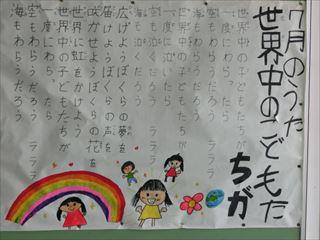 7月のうた
世界中のこどもたちが
世界中のこどもたちが
一度にわらったら
空もわらうだろう ラララ
海もわらうだろう
世界中のこどもたちが
一度に泣いたら
空も泣くだろう ラララ
海も泣くだろう
広げようぼくらの夢を
届けようぼくらの声を
咲かせようぼくらの花を
世界に虹をかけよう
世界中の子どもたちが
一度にわらったら
空もわらうだろう ラララ
海もわらうだろう